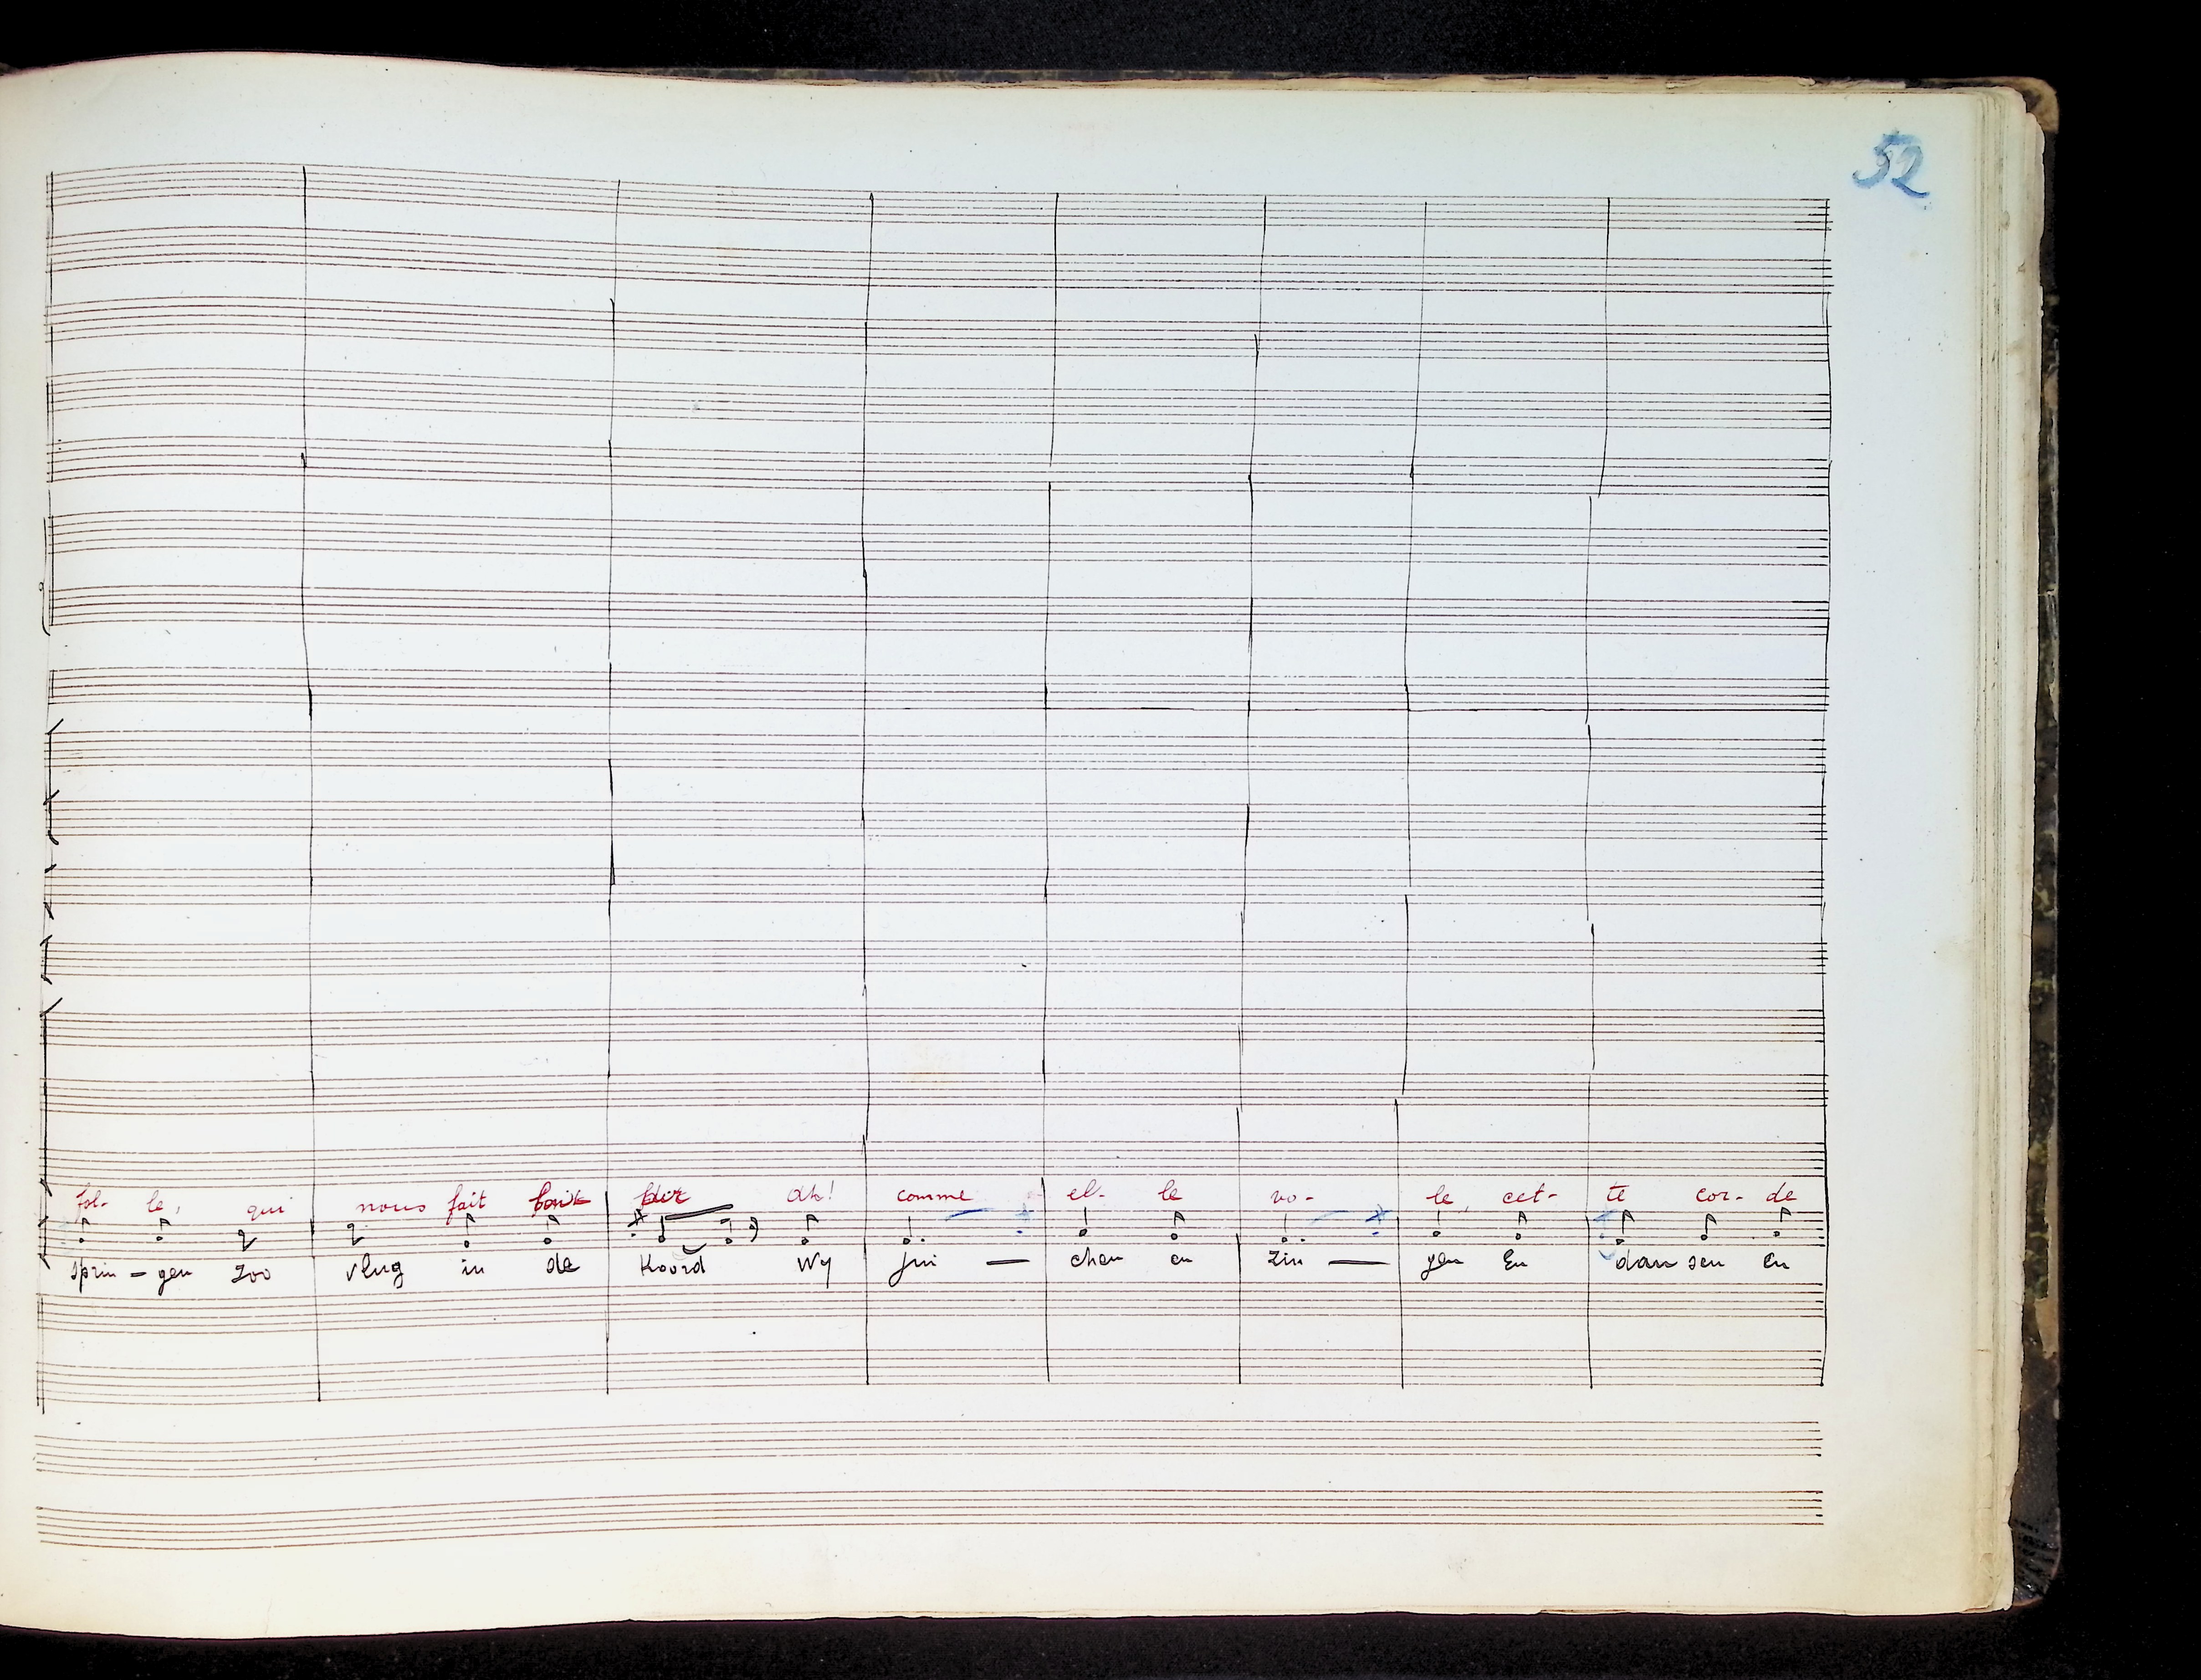 52
fol- le, qui nous fait Ah! comme el- le vo- le, cet- te cor- de
sprin - gen zoo vlug in de koord Wy jui — chen en zin — gen En dan sen en